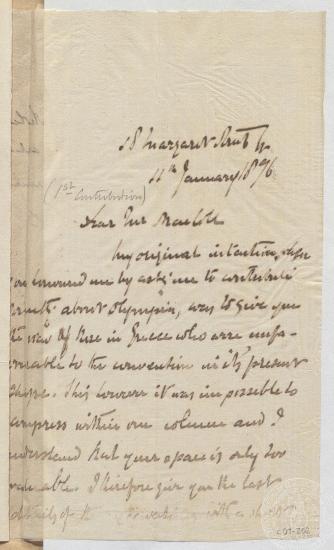 18 Margaret Street
11th January 1896
(1st Contribution)
Dear
My original intention, when
you honoured me by asking me to contribute
about Olympia, was to give you
the views of those in Greece who are unfa-
vorable to the convention in its present
shape. This however it was impossible to
compress within one column and I
understand that your space is only too
valuable. I therefore give you the last
details of with a
COT-202